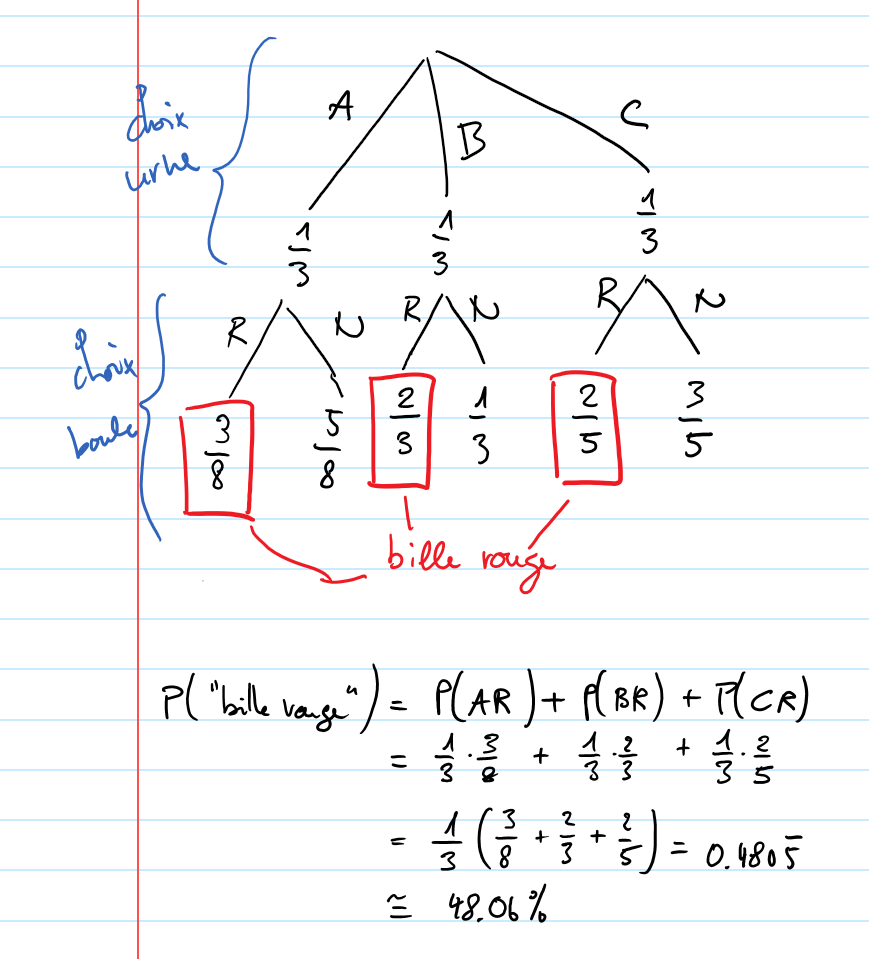 choix urne
A B C
1/3 1/3 1/3
choix boule
R N R N R N
3/8 5/8 2/3 1/3 2/5 3/5
bille rouge
P("bille rouge") = P(AR) + P(BR) + P(CR)
= 1/3 · 3/8 + 1/3 · 2/3 + 1/3 · 2/5
= 1/3 (3/8 + 2/3 + 2/5) = 0.4805̅
≅ 48.06%